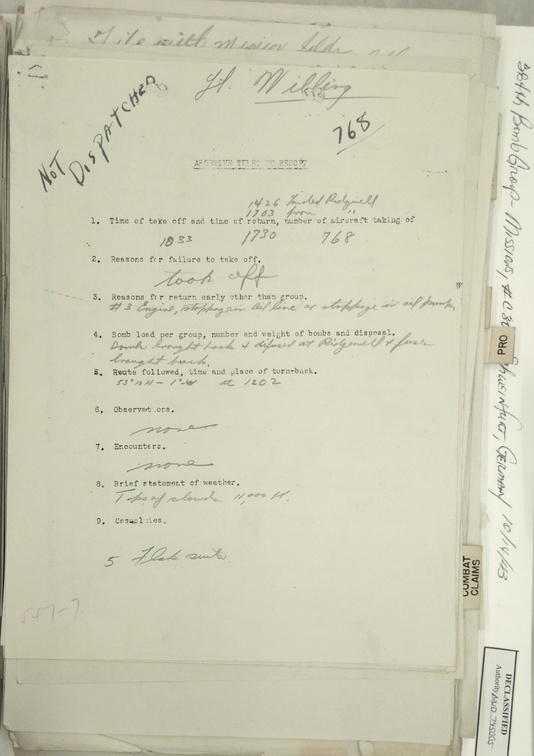 File with mission
Lt. Willing
NOT DISPATCHED
768
ABORTIVE TELETYPE REPORT
1426 landed Ridgewell
1703 from "
1. Time of take off and time of return, number of aircraft taking of
1033 1730 768
2. Reasons for failure to take off.
took off
3. Reasons for return early other than group.
#3 Engine, stoppage in oil line or stoppage in oil pump.
4. Bomb load per group, number and weight of bombs and disposal.
Bomb brought back & difused at Ridgewell & fuses
brought back.
5. Route followed, time and place of turn-back.
53°10N - 1°W at 1202
6. Observations.
none
7. Encounters.
none
8. Brief statement of weather.
Tops of clouds 11,000 ft.
9. Casualties.
5 Flak suits
557-7
384th Bomb Group Mission, Schweinfurt, Germany 10/14/43
PRO
COMBAT
CLAIMS
DECLASSIFIED
Authority NND